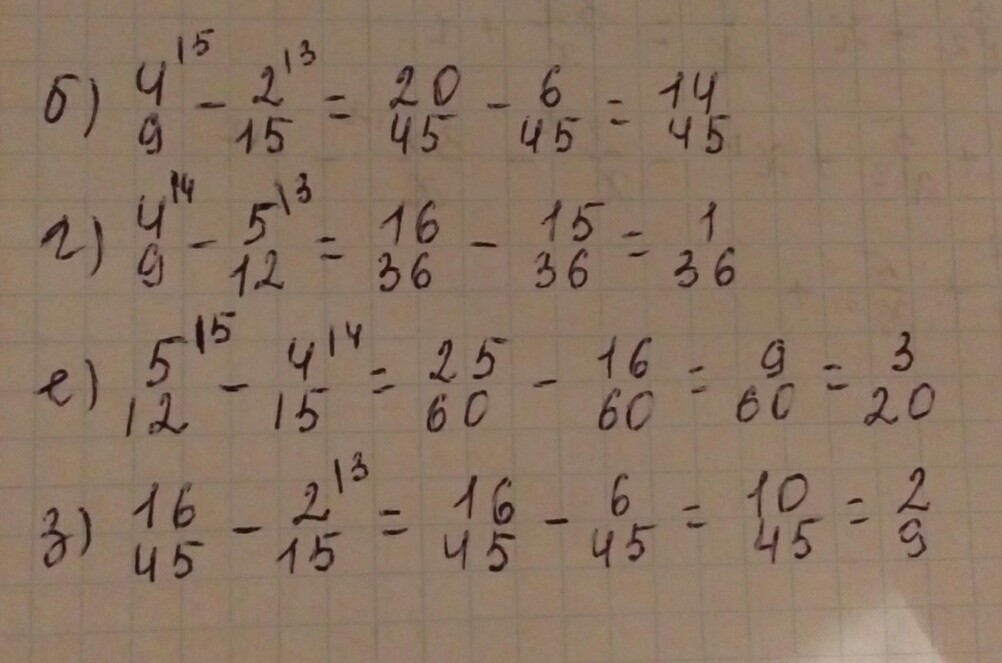 б) 4/9 \5 - 2/15 \3 = 20/45 - 6/45 = 14/45
г) 4/9 \4 - 5/12 \3 = 16/36 - 15/36 = 1/36
е) 5/12 \5 - 4/15 \4 = 25/60 - 16/60 = 9/60 = 3/20
з) 16/45 - 2/15 \3 = 16/45 - 6/45 = 10/45 = 2/9